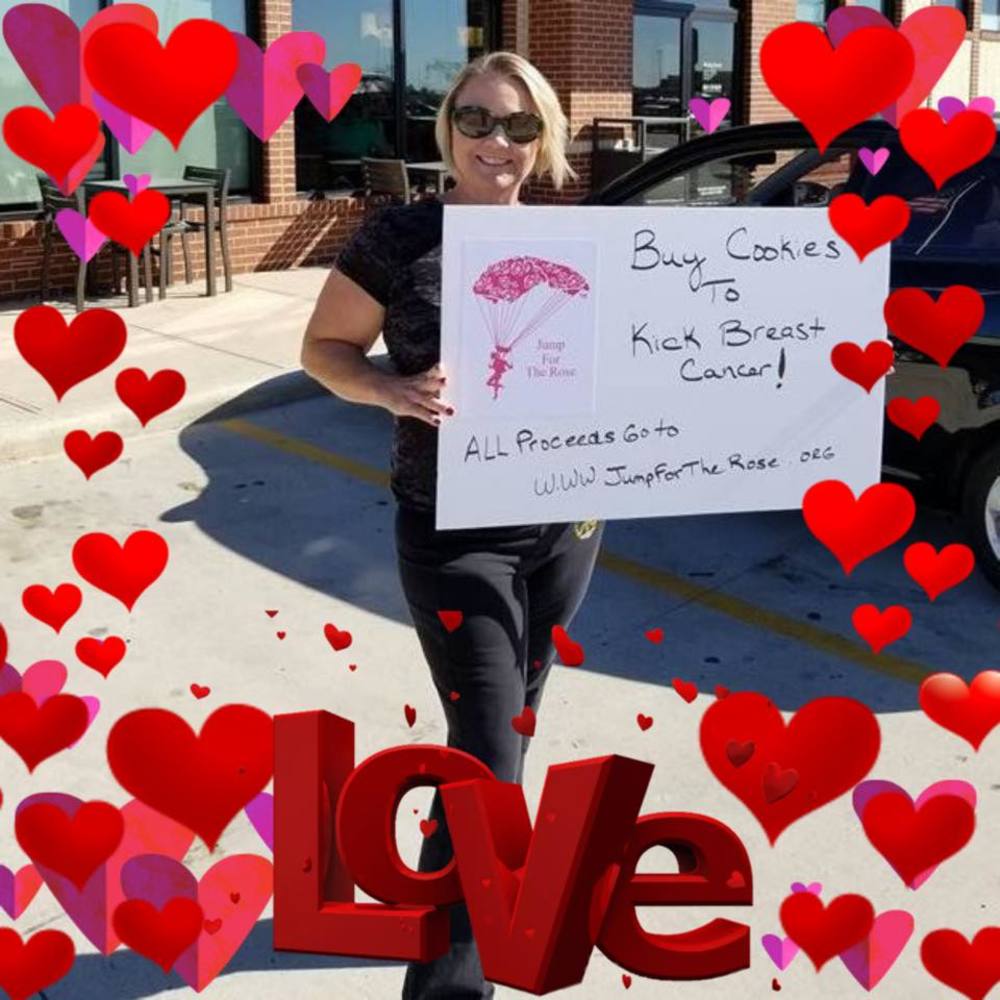 Buy Cookies
To
Kick Breast
Cancer!
Jump
For
The Rose
ALL Proceeds Go to
WWW.JumpForTheRose.ORG
Love